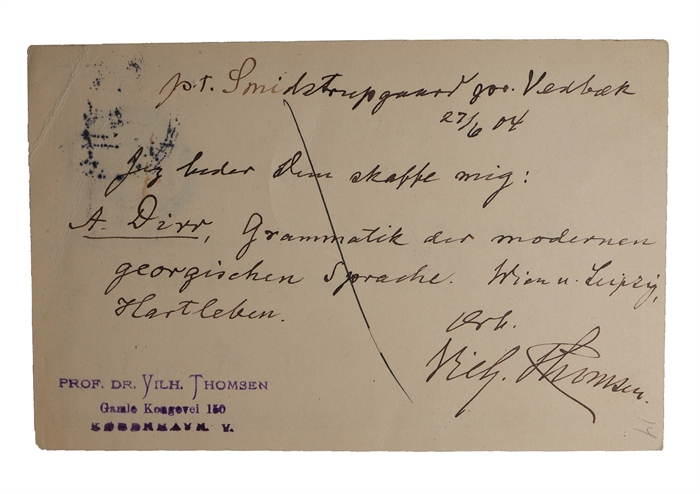 p.t. Smidstrupgaard pr. Vedbæk
27/6 04
Jeg beder Dem skaffe mig:
A. Dirr, Grammatik der modernen
georgischen Sprache. Wien u. Leipzig,
Hartleben.
Ærb.
Vilh. Thomsen.
PROF. DR. VILH. THOMSEN
Gamle Kongevei 150
KØBENHAVN. V.